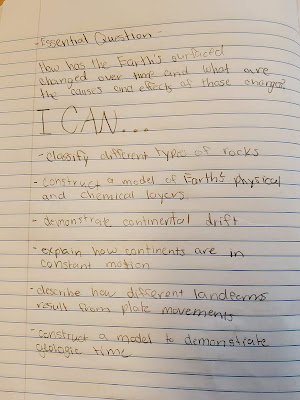 -Essential Question-
How has the Earth's surfaced
changed over time and what are
the causes and effects of those changes?
I CAN...
-classify different types of rocks
-construct a model of Earth's physical
and chemical layers.
-demonstrate continental drift
-explain how continents are in
constant motion
-describe how different landforms
result from plate movements
-construct a model to demonstrate
geologic time